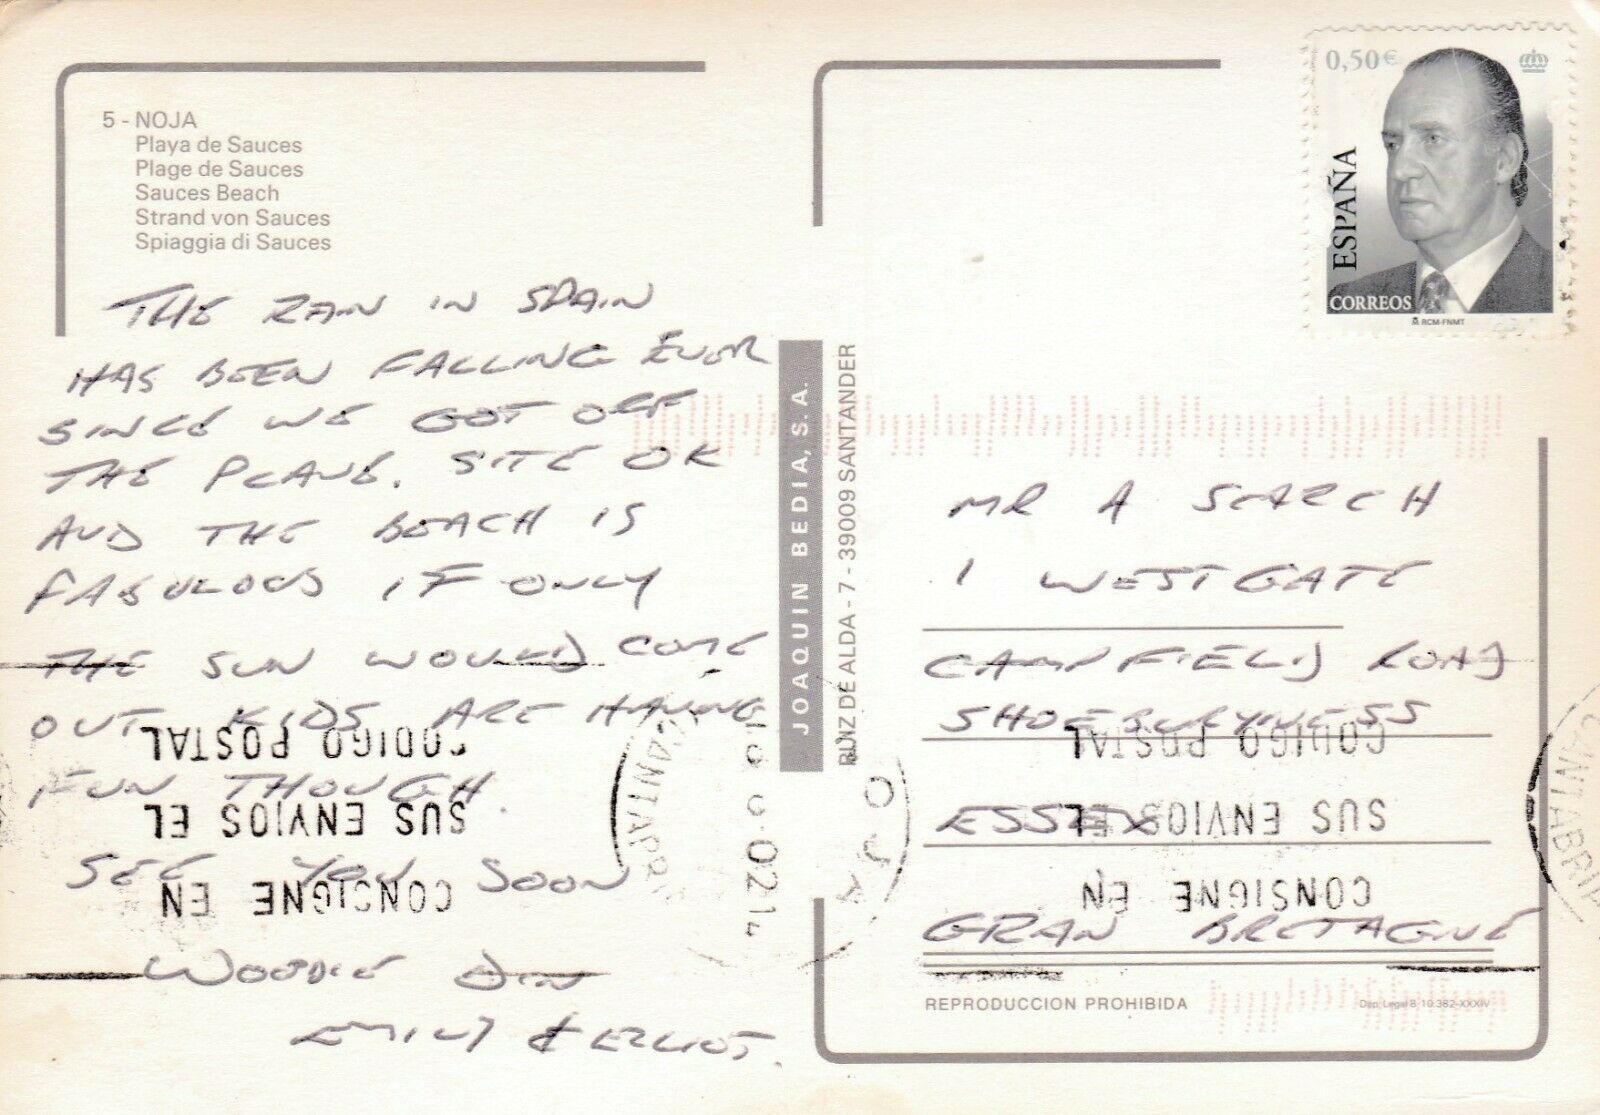 5 - NOJA
Playa de Sauces
Plage de Sauces
Sauces Beach
Strand von Sauces
Spiaggia di Sauces
THE RAIN IN SPAIN
HAS BEEN FALLING EVER
SINCE WE GOT OFF
THE PLANE. SITE OK
AND THE BEACH IS
FABULOUS IF ONLY
THE SUN WOULD COME
OUT KIDS ARE HAVING
FUN THOUGH.
SEE YOU SOON
WOODIE
EMILY & ELLIOT.
JOAQUIN BEDIA, S. A.
RUIZ DE ALDA - 7 - 39009 SANTANDER
0,50€
ESPAÑA
CORREOS
RCM-FNMT
MR A SEARCH
1 WESTGATE
CAMPFIELD ROAD
SHOEBURYNESS
ESSEX
GRAN BRETAGNE
CONSIGNE EN
SUS ENVIOS EL
CODIGO POSTAL
CONSIGNE EN
SUS ENVIOS EL
CODIGO POSTAL
CANTABRIA
REPRODUCCION PROHIBIDA
Dep. Legal B 10.382-XXXIV